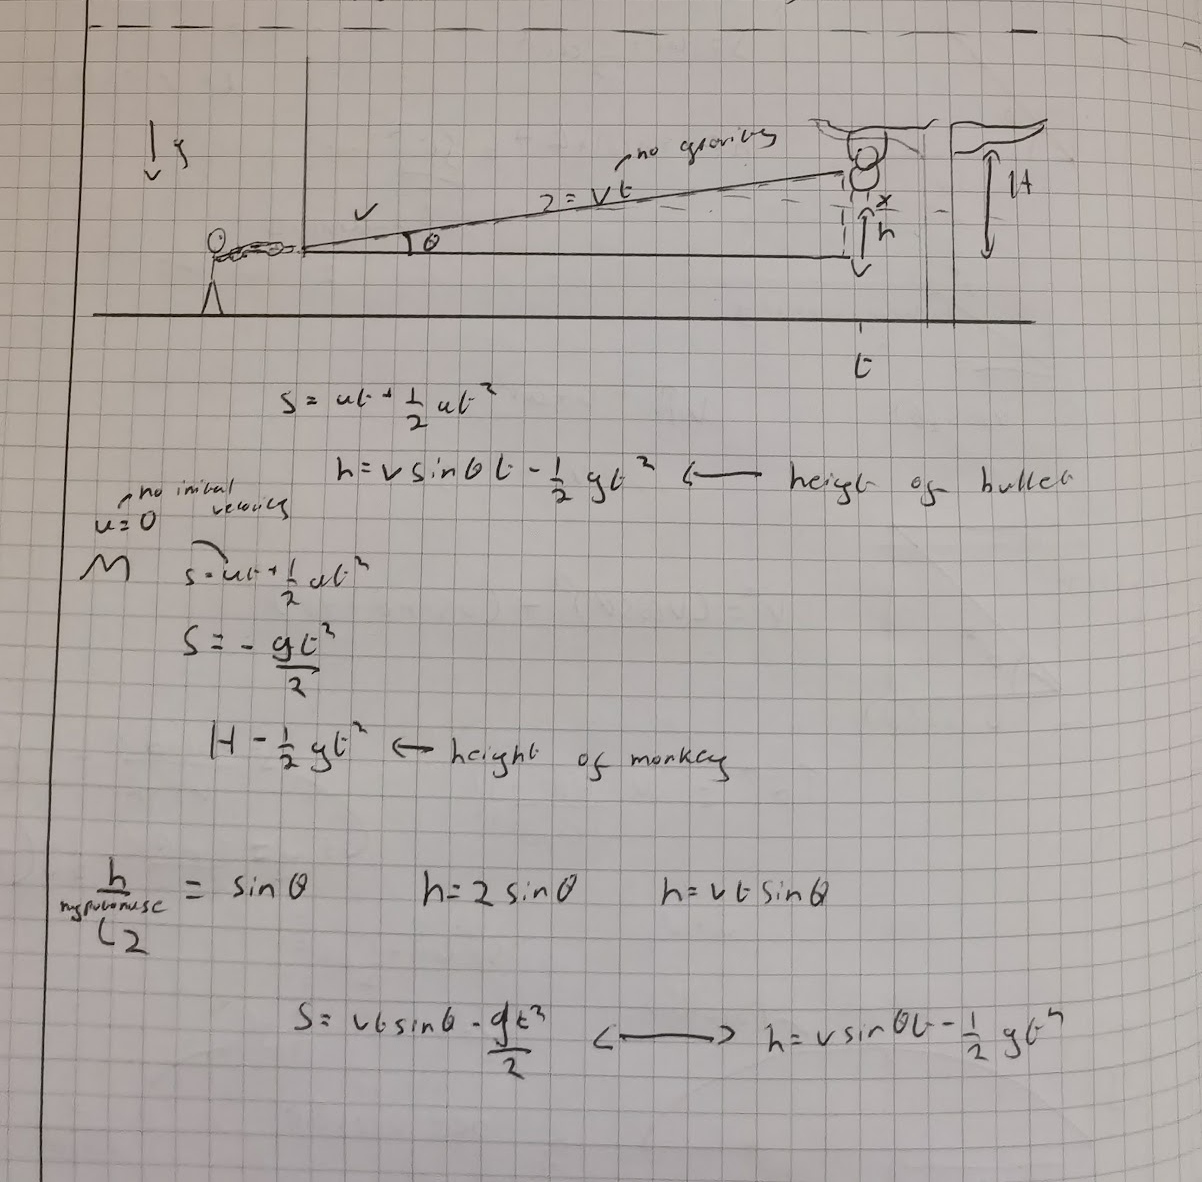 g
no gravity
v
z = vt
θ
x
h
H
t
s = ut + 1/2 at²
h = v sinθ t - 1/2 gt² ← height of bullet
no initial velocity
u = 0
M s = ut + 1/2 at²
s = - gt²/2
H - 1/2 gt² ← height of monkey
h/hypotenuse = sinθ h = z sinθ h = vt sinθ
z
s = vt sinθ - gt²/2 ↔ h = v sinθt - 1/2 gt²